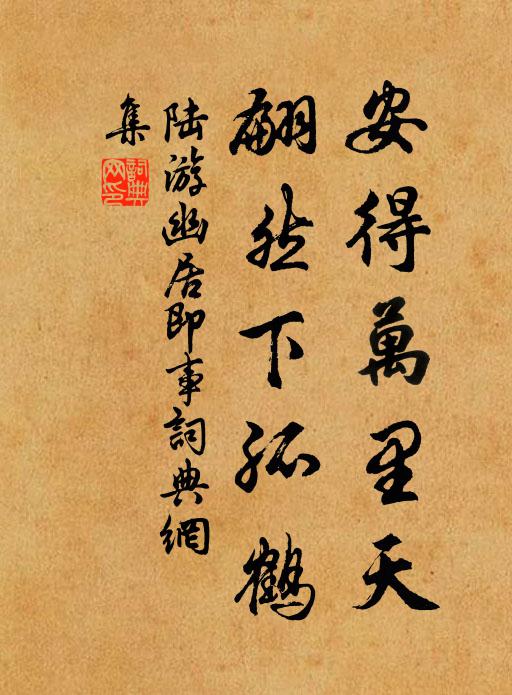 安得萬里天
翩然下孤鶴
陆游幽居即事詞典網
集
詞典網印